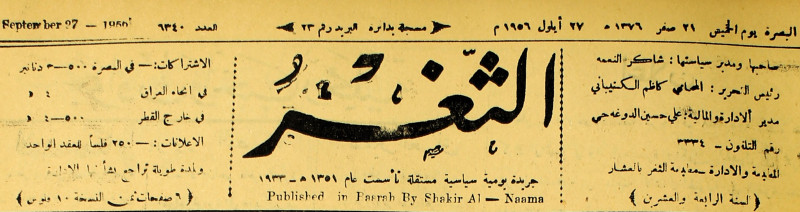 البصرة يوم الخميس ٢١ صفر ١٣٧٦ هـ ٢٧ أيلول ١٩٥٦ م مسجلة بدائرة البريد رقم ٢٣ العدد ٦٣٤٠ September 27 - 1956
صاحبها ومدير سياستها : شاكر النعمه
رئيس التحرير : المحامي كاظم الكتيباني
مدير الادارة والمالية : علي حسين الدوغه جي
رقم التلفون - ٣٣٣٤
المطبعة والادارة - مطبعة الثغر بالعشار
( السنة الرابعة والعشرين )
الثغر
جريدة يومية سياسية مستقلة تأسست عام ١٣٥١ هـ - ١٩٣٣
Published in Basrah By Shakir Al - Naama
الاشتراكات :- في البصرة ٥٠٠-٣ دنانير
في انحاء العراق ٤ د
في خارج القطر ٥٠٠-٤ د
الاعلانات :- ٢٥٠ فلساً للعقد الواحد
ولمدة طويلة تراجع بشأنها الادارة
( ٦ صفحات ثمن النسخة ١٠ فلوس )